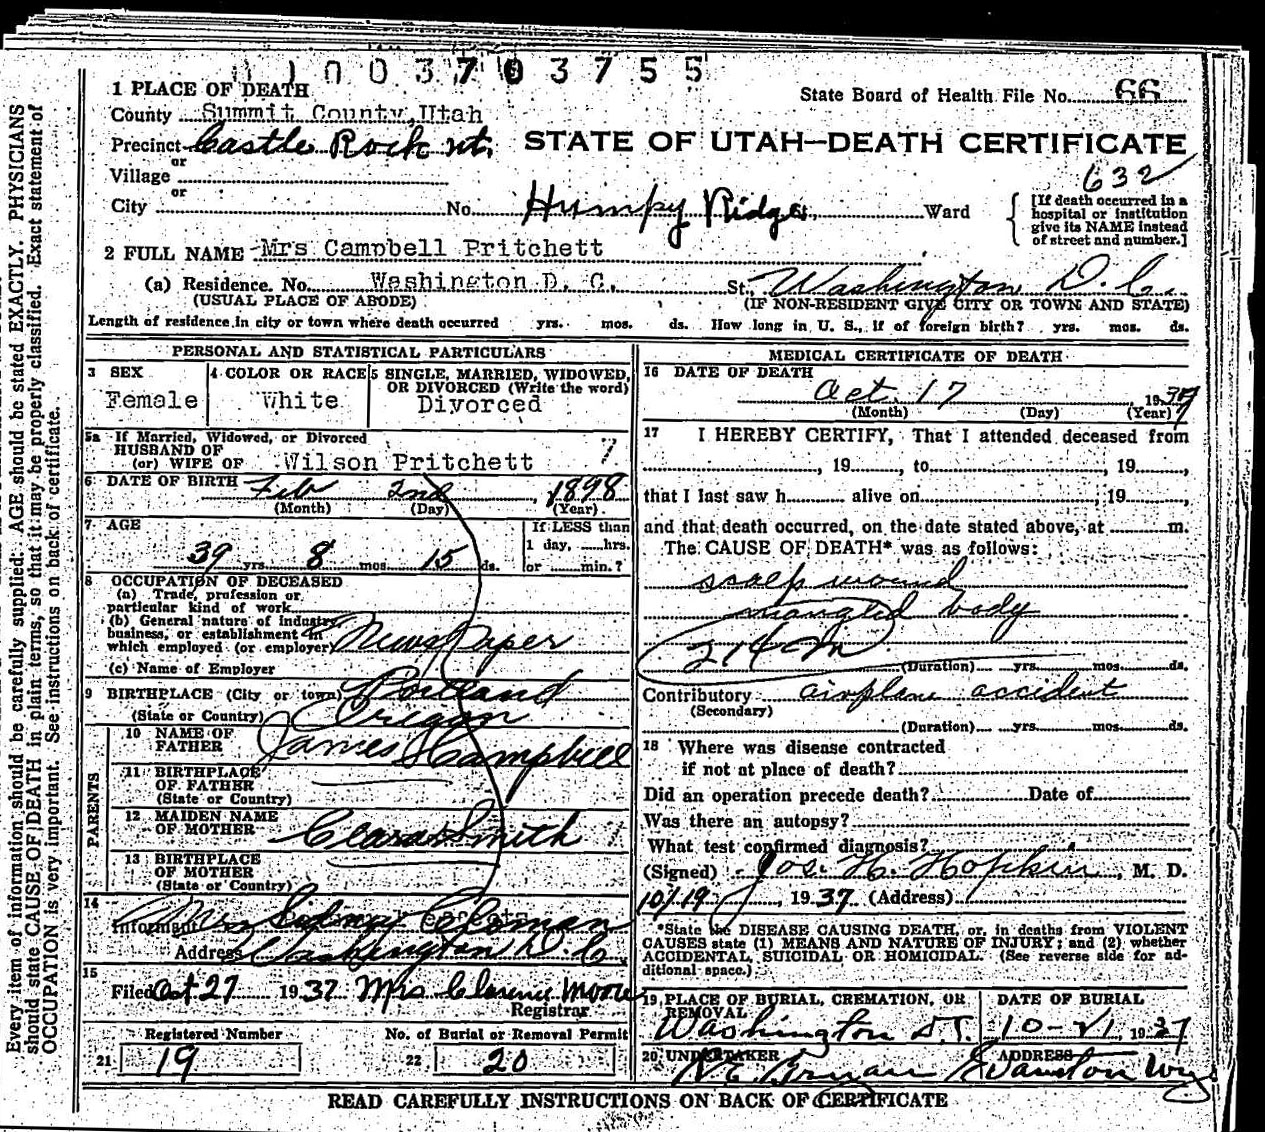 1 PLACE OF DEATH
State Board of Health File No. 66
County Summit County, Utah
Precinct Castle Rock ut.
STATE OF UTAH—DEATH CERTIFICATE
or
632
Village
or
City No. Humpy Ridge St., Ward
[If death occurred in a
hospital or institution
give its NAME instead
of street and number.]
2 FULL NAME Mrs Campbell Pritchett
(a) Residence. No. Washington D. C. St., Washington D.C.
(USUAL PLACE OF ABODE) (IF NON-RESIDENT GIVE CITY OR TOWN AND STATE)
Length of residence in city or town where death occurred yrs. mos. ds. How long in U. S., if of foreign birth? yrs. mos. ds.
PERSONAL AND STATISTICAL PARTICULARS
3 SEX
Female
4 COLOR OR RACE
White
5 SINGLE, MARRIED, WIDOWED,
OR DIVORCED (Write the word)
Divorced
5a If Married, Widowed, or Divorced
HUSBAND OF
(or) WIFE OF Wilson Pritchett 7
6 DATE OF BIRTH Feb 2nd, 1898
(Month) (Day) (Year)
7 AGE
39 yrs. 8 mos. 15 ds.
If LESS than
1 day, hrs.
or min.?
8 OCCUPATION OF DECEASED
(a) Trade, profession or
particular kind of work
(b) General nature of industry
business, or establishment in
which employed (or employer) Newspaper
(c) Name of Employer
9 BIRTHPLACE (City or town) Portland
(State or Country) Oregon
PARENTS
10 NAME OF
FATHER James Campbell
11 BIRTHPLACE
OF FATHER
(State or Country)
12 MAIDEN NAME
OF MOTHER Clara Smith
13 BIRTHPLACE
OF MOTHER
(State or Country)
14
Informant Mrs Sidney
Address Washington D.C.
15
Filed Oct 27 1937 Mrs Clarence Moore
Registrar
Registered Number No. of Burial or Removal Permit
21 19 22 20
MEDICAL CERTIFICATE OF DEATH
16 DATE OF DEATH
Oct. 17, 1937
(Month) (Day) (Year)
17 I HEREBY CERTIFY, That I attended deceased from
, 19 , to , 19 ,
that I last saw h alive on , 19 ,
and that death occurred, on the date stated above, at m.
The CAUSE OF DEATH* was as follows:
scalp wound
mangled body
(Duration) yrs. mos. ds.
Contributory airplane accident
(Secondary)
(Duration) yrs. mos. ds.
18 Where was disease contracted
if not at place of death?
Did an operation precede death? Date of
Was there an autopsy?
What test confirmed diagnosis?
(Signed) Jos. H. Hopkin, M. D.
10/19, 1937 (Address)
*State the DISEASE CAUSING DEATH, or, in deaths from VIOLENT
CAUSES state (1) MEANS AND NATURE OF INJURY; and (2) whether
ACCIDENTAL, SUICIDAL OR HOMICIDAL. (See reverse side for ad-
ditional space.)
19 PLACE OF BURIAL, CREMATION, OR
REMOVAL
Washington
DATE OF BURIAL
10-21, 1937
20 UNDERTAKER ADDRESS
Bryan Evanston Wyo
READ CAREFULLY INSTRUCTIONS ON BACK OF CERTIFICATE
Every item of information should be carefully supplied. AGE should be stated EXACTLY. PHYSICIANS
should state CAUSE OF DEATH in plain terms, so that it may be properly classified. Exact statement of
OCCUPATION is very important. See instructions on back of certificate.